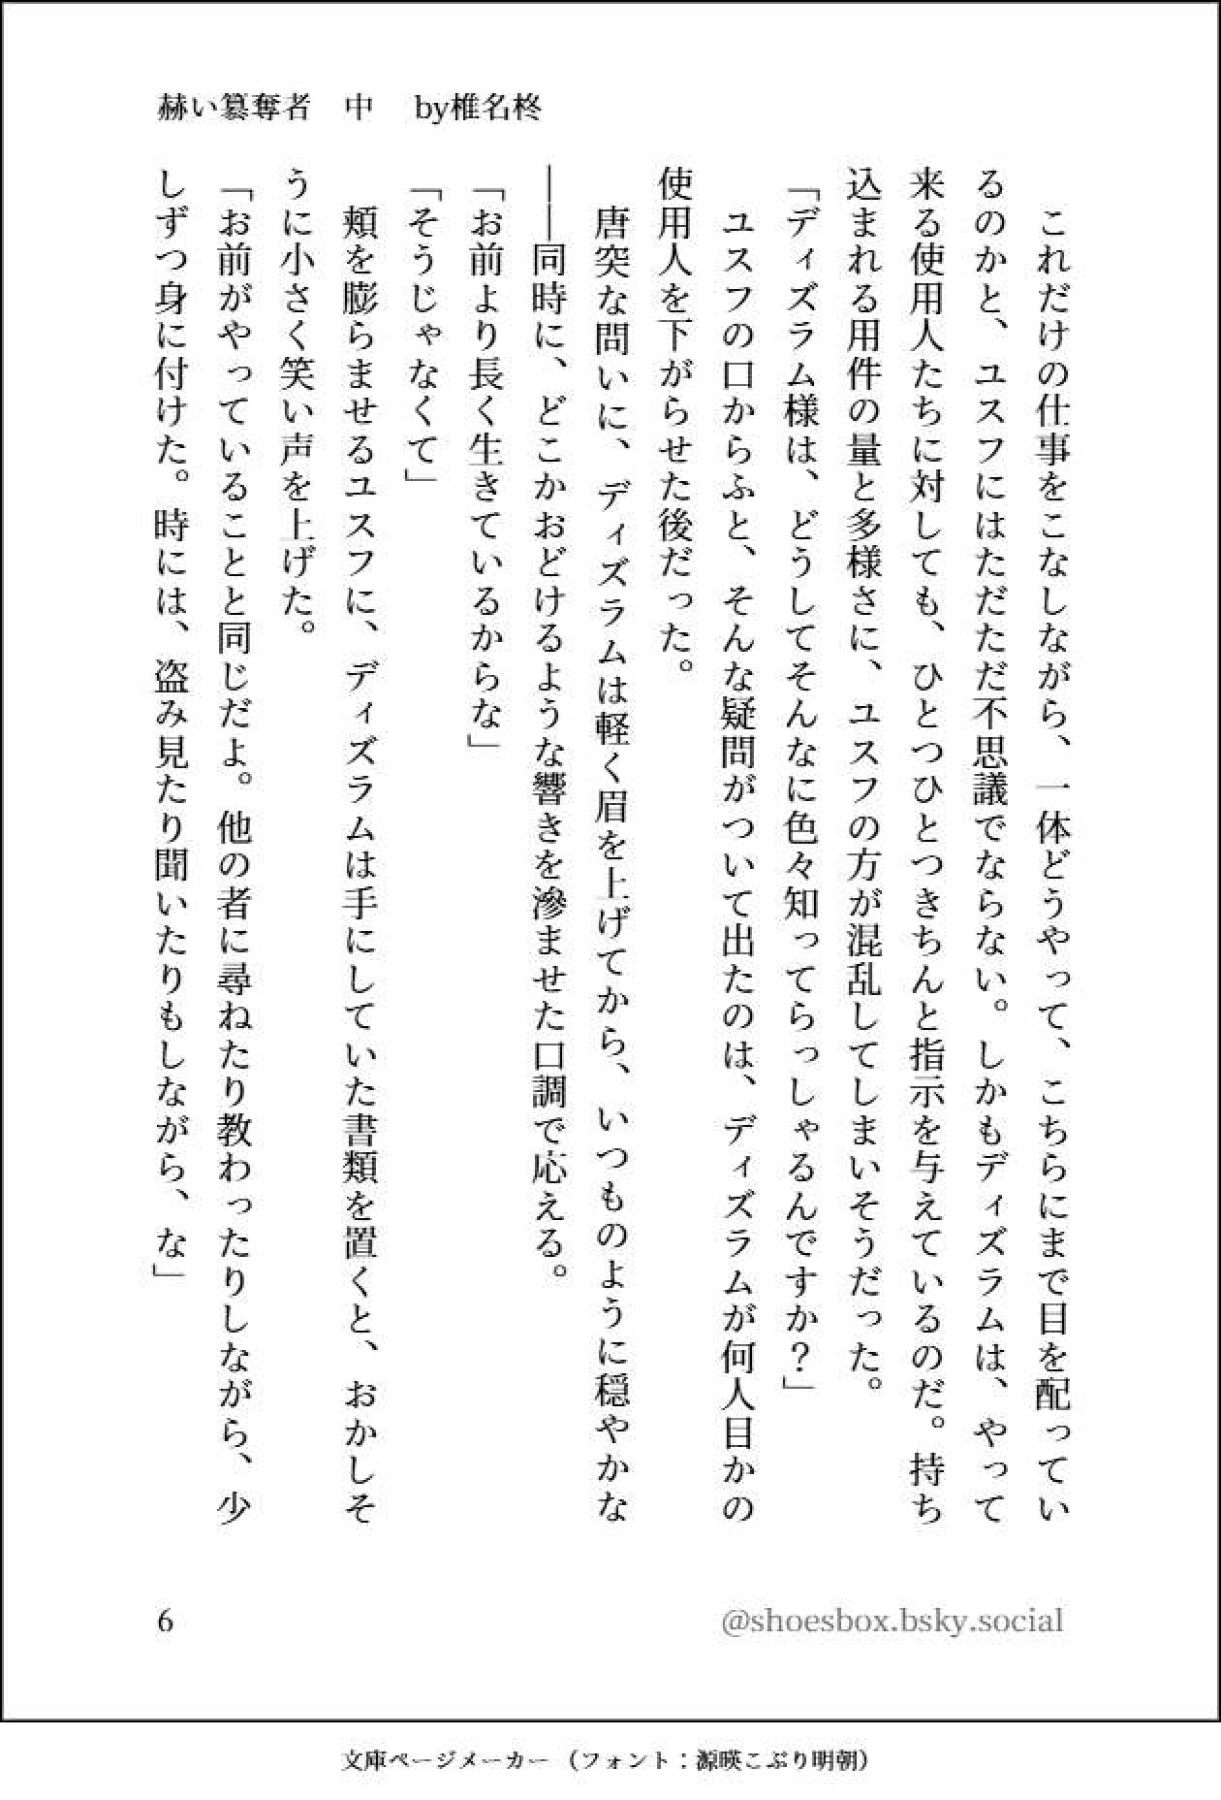 赫い簒奪者　中　by椎名柊
　これだけの仕事をこなしながら、一体どうやって、こちらにまで目を配ってい
るのかと、ユスフにはただただ不思議でならない。しかもディズラムは、やって
来る使用人たちに対しても、ひとつひとつきちんと指示を与えているのだ。持ち
込まれる用件の量と多様さに、ユスフの方が混乱してしまいそうだった。
「ディズラム様は、どうしてそんなに色々知ってらっしゃるんですか？」
　ユスフの口からふと、そんな疑問がついて出たのは、ディズラムが何人目かの
使用人を下がらせた後だった。
　唐突な問いに、ディズラムは軽く眉を上げてから、いつものように穏やかな
――同時に、どこかおどけるような響きを滲ませた口調で応える。
「お前より長く生きているからな」
「そうじゃなくて」
　頬を膨らませるユスフに、ディズラムは手にしていた書類を置くと、おかしそ
うに小さく笑い声を上げた。
「お前がやっていることと同じだよ。他の者に尋ねたり教わったりしながら、少
しずつ身に付けた。時には、盗み見たり聞いたりもしながら、な」
6
@shoesbox.bsky.social
文庫ページメーカー（フォント：源暎こぶり明朝）